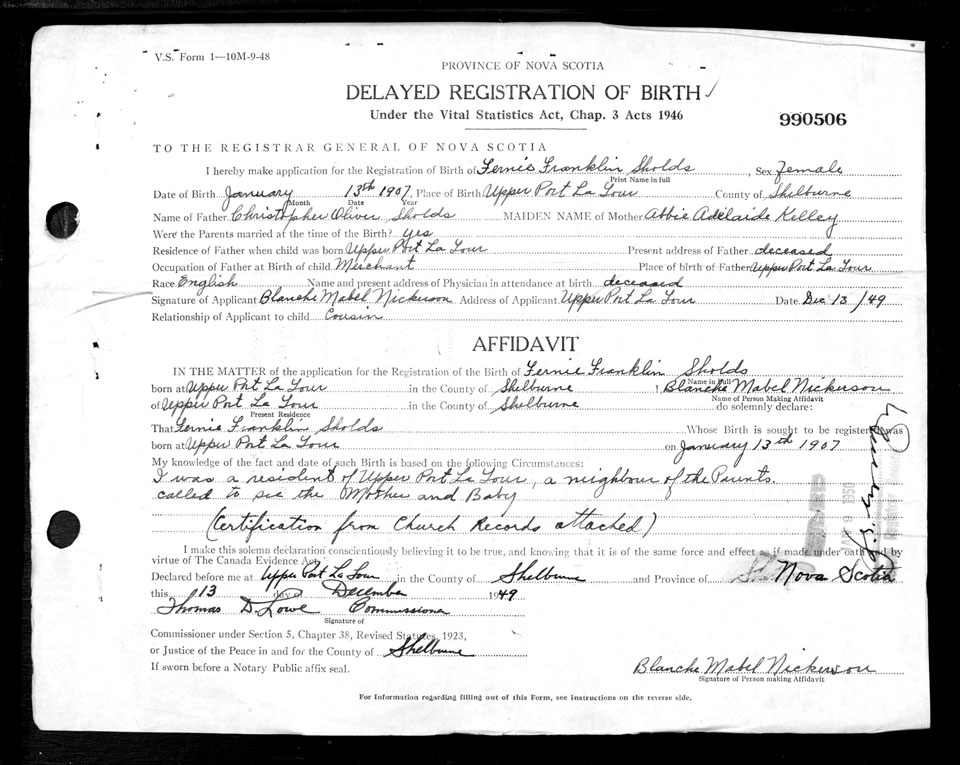 V.S. Form 1—10M-9-48
PROVINCE OF NOVA SCOTIA
DELAYED REGISTRATION OF BIRTH
Under the Vital Statistics Act, Chap. 3 Acts 1946
990506
TO THE REGISTRAR GENERAL OF NOVA SCOTIA
I hereby make application for the Registration of Birth of Fernie Franklin Sholds, Sex Female
Print Name in full
Date of Birth January 13th 1907, Place of Birth Upper Port La Tour County of Shelburne
Month Date Year
Name of Father Christopher Oliver Sholds MAIDEN NAME of Mother Abbie Adelaide Kelley
Were the Parents married at the time of the Birth? yes
Residence of Father when child was born Upper Port La Tour Present address of Father deceased
Occupation of Father at Birth of child Merchant Place of birth of Father Upper Port La Tour
Race English Name and present address of Physician in attendance at birth deceased
Signature of Applicant Blanche Mabel Nickerson Address of Applicant Upper Port La Tour Date Dec 13/49
Relationship of Applicant to child Cousin
AFFIDAVIT
IN THE MATTER of the application for the Registration of the Birth of Fernie Franklin Sholds
Name in Full
born at Upper Port La Tour in the County of Shelburne I, Blanche Mabel Nickerson
Name of Person Making Affidavit
of Upper Port La Tour in the County of Shelburne do solemnly declare:
Present Residence
That Fernie Franklin Sholds Whose Birth is sought to be registered was
born at Upper Port La Tour on January 13th 1907
My knowledge of the fact and date of such Birth is based on the following Circumstances:
I was a resident of Upper Port La Tour, a neighbour of the Parents.
called to see the Mother and Baby
(Certification from Church Records attached)
I make this solemn declaration conscientiously believing it to be true, and knowing that it is of the same force and effect as if made under oath and by
virtue of The Canada Evidence Act.
Declared before me at Upper Port La Tour in the County of Shelburne and Province of Nova Scotia
this 13 day of December 1949
Thomas D. Lowe Commissioner
Signature of
Commissioner under Section 5, Chapter 38, Revised Statutes, 1923,
or Justice of the Peace in and for the County of Shelburne
If sworn before a Notary Public affix seal.
Blanche Mabel Nickerson
Signature of Person making Affidavit
For Information regarding filling out of this Form, see instructions on the reverse side.
9 1950